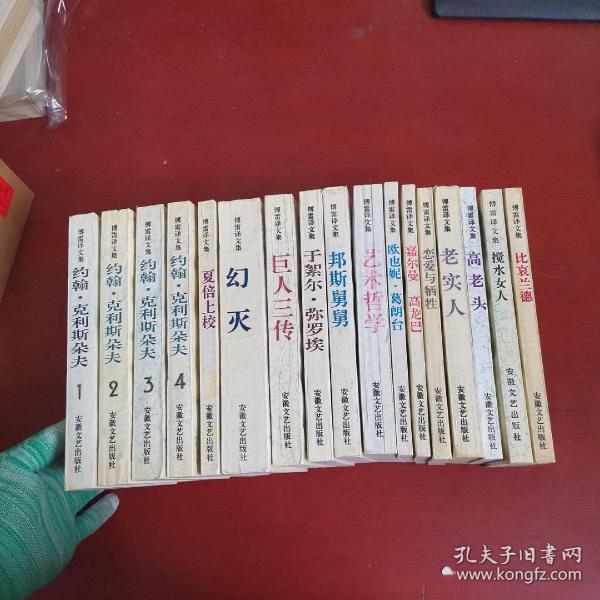 傅雷译文集
约翰·克利斯朵夫
1
安徽文艺出版社
傅雷译文集
约翰·克利斯朵夫
2
安徽文艺出版社
傅雷译文集
约翰·克利斯朵夫
3
安徽文艺出版社
傅雷译文集
约翰·克利斯朵夫
4
安徽文艺出版社
傅雷译文集
夏倍上校
安徽文艺出版社
傅雷译文集
幻灭
安徽文艺出版社
傅雷译文集
巨人三传
安徽文艺出版社
傅雷译文集
于絮尔·弥罗埃
安徽文艺出版社
傅雷译文集
邦斯舅舅
安徽文艺出版社
傅雷译文集
艺术哲学
安徽文艺出版社
傅雷译文集
欧也妮·葛朗台
安徽文艺出版社
傅雷译文集
嘉尔曼 高龙巴
安徽文艺出版社
傅雷译文集
恋爱与牺牲
安徽文艺出版社
傅雷译文集
老实人
安徽文艺出版社
傅雷译文集
高老头
安徽文艺出版社
傅雷译文集
搅水女人
安徽文艺出版社
傅雷译文集
比哀兰德
安徽文艺出版社
孔夫子旧书网
www.kongfz.com